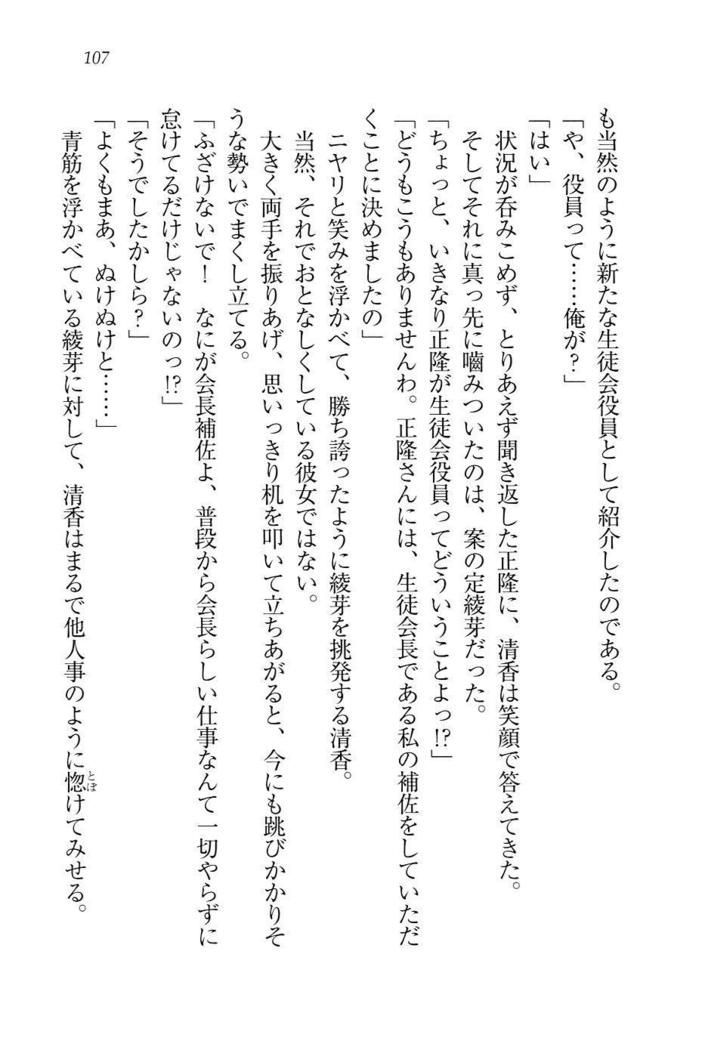 107
も当然のように新たな生徒会役員として紹介したのである。
「や、役員って……俺が？」
「はい」
状況が呑みこめず、とりあえず聞き返した正隆に、清香は笑顔で答えてきた。
そしてそれに真っ先に嚙みついたのは、案の定綾芽だった。
「ちょっと、いきなり正隆が生徒会役員ってどういうことよっ!?」
「どうもこうもありませんわ。正隆さんには、生徒会長である私の補佐をしていただ
くことに決めましたの」
ニヤリと笑みを浮かべて、勝ち誇ったように綾芽を挑発する清香。
当然、それでおとなしくしている彼女ではない。
大きく両手を振りあげ、思いっきり机を叩いて立ちあがると、今にも跳びかかりそ
うな勢いでまくし立てる。
「ふざけないで！　なにが会長補佐よ、普段から会長らしい仕事なんて一切やらずに
怠けてるだけじゃないのっ!?」
「そうでしたかしら？」
「よくもまあ、ぬけぬけと……」
青筋を浮かべている綾芽に対して、清香はまるで他人事のように惚けてみせる。
とぼ